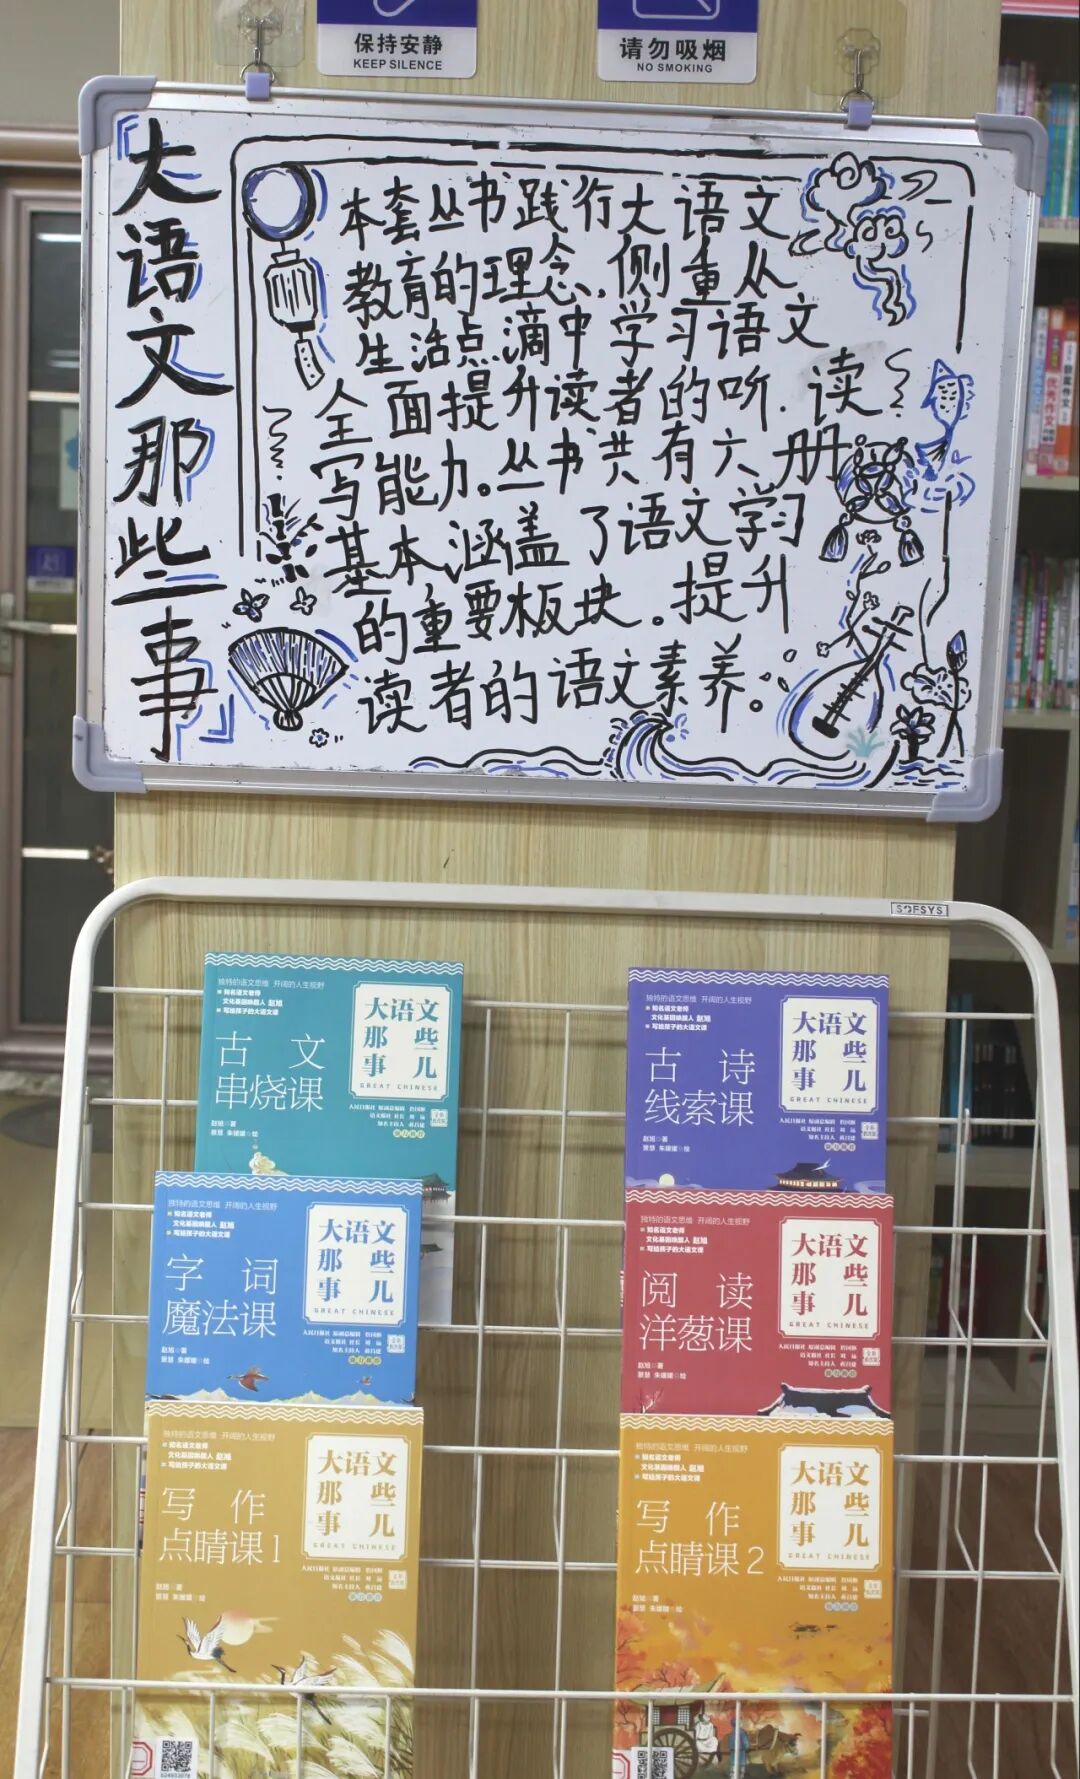 保持安静
KEEP SILENCE
请勿吸烟
NO SMOKING
『大语文那些事』
本套丛书践行大语文
教育的理念,侧重从
生活点滴中学习语文
全面提升读者的听.读
写能力。丛书共有六册
基本涵盖了语文学习
的重要板块。提升
读者的语文素养。
SOFSYS
独特的语文思维 开阔的人生视野
知名语文老师
文化基因唤醒人 赵旭
写给孩子的大语文课
大语文
那些
事儿
GREAT CHINESE
古文
串烧课
赵旭◎著
独特的语文思维 开阔的人生视野
知名语文老师
文化基因唤醒人 赵旭
写给孩子的大语文课
大语文
那些
事儿
GREAT CHINESE
古诗
线索课
赵旭◎著
独特的语文思维 开阔的人生视野
知名语文老师
文化基因唤醒人 赵旭
写给孩子的大语文课
大语文
那些
事儿
GREAT CHINESE
字词
魔法课
赵旭◎著
独特的语文思维 开阔的人生视野
知名语文老师
文化基因唤醒人 赵旭
写给孩子的大语文课
大语文
那些
事儿
GREAT CHINESE
阅读
洋葱课
赵旭◎著
独特的语文思维 开阔的人生视野
知名语文老师
文化基因唤醒人 赵旭
写给孩子的大语文课
大语文
那些
事儿
GREAT CHINESE
写作
点睛课1
赵旭◎著
独特的语文思维 开阔的人生视野
知名语文老师
文化基因唤醒人 赵旭
写给孩子的大语文课
大语文
那些
事儿
GREAT CHINESE
写作
点睛课2
赵旭◎著
优秀作文